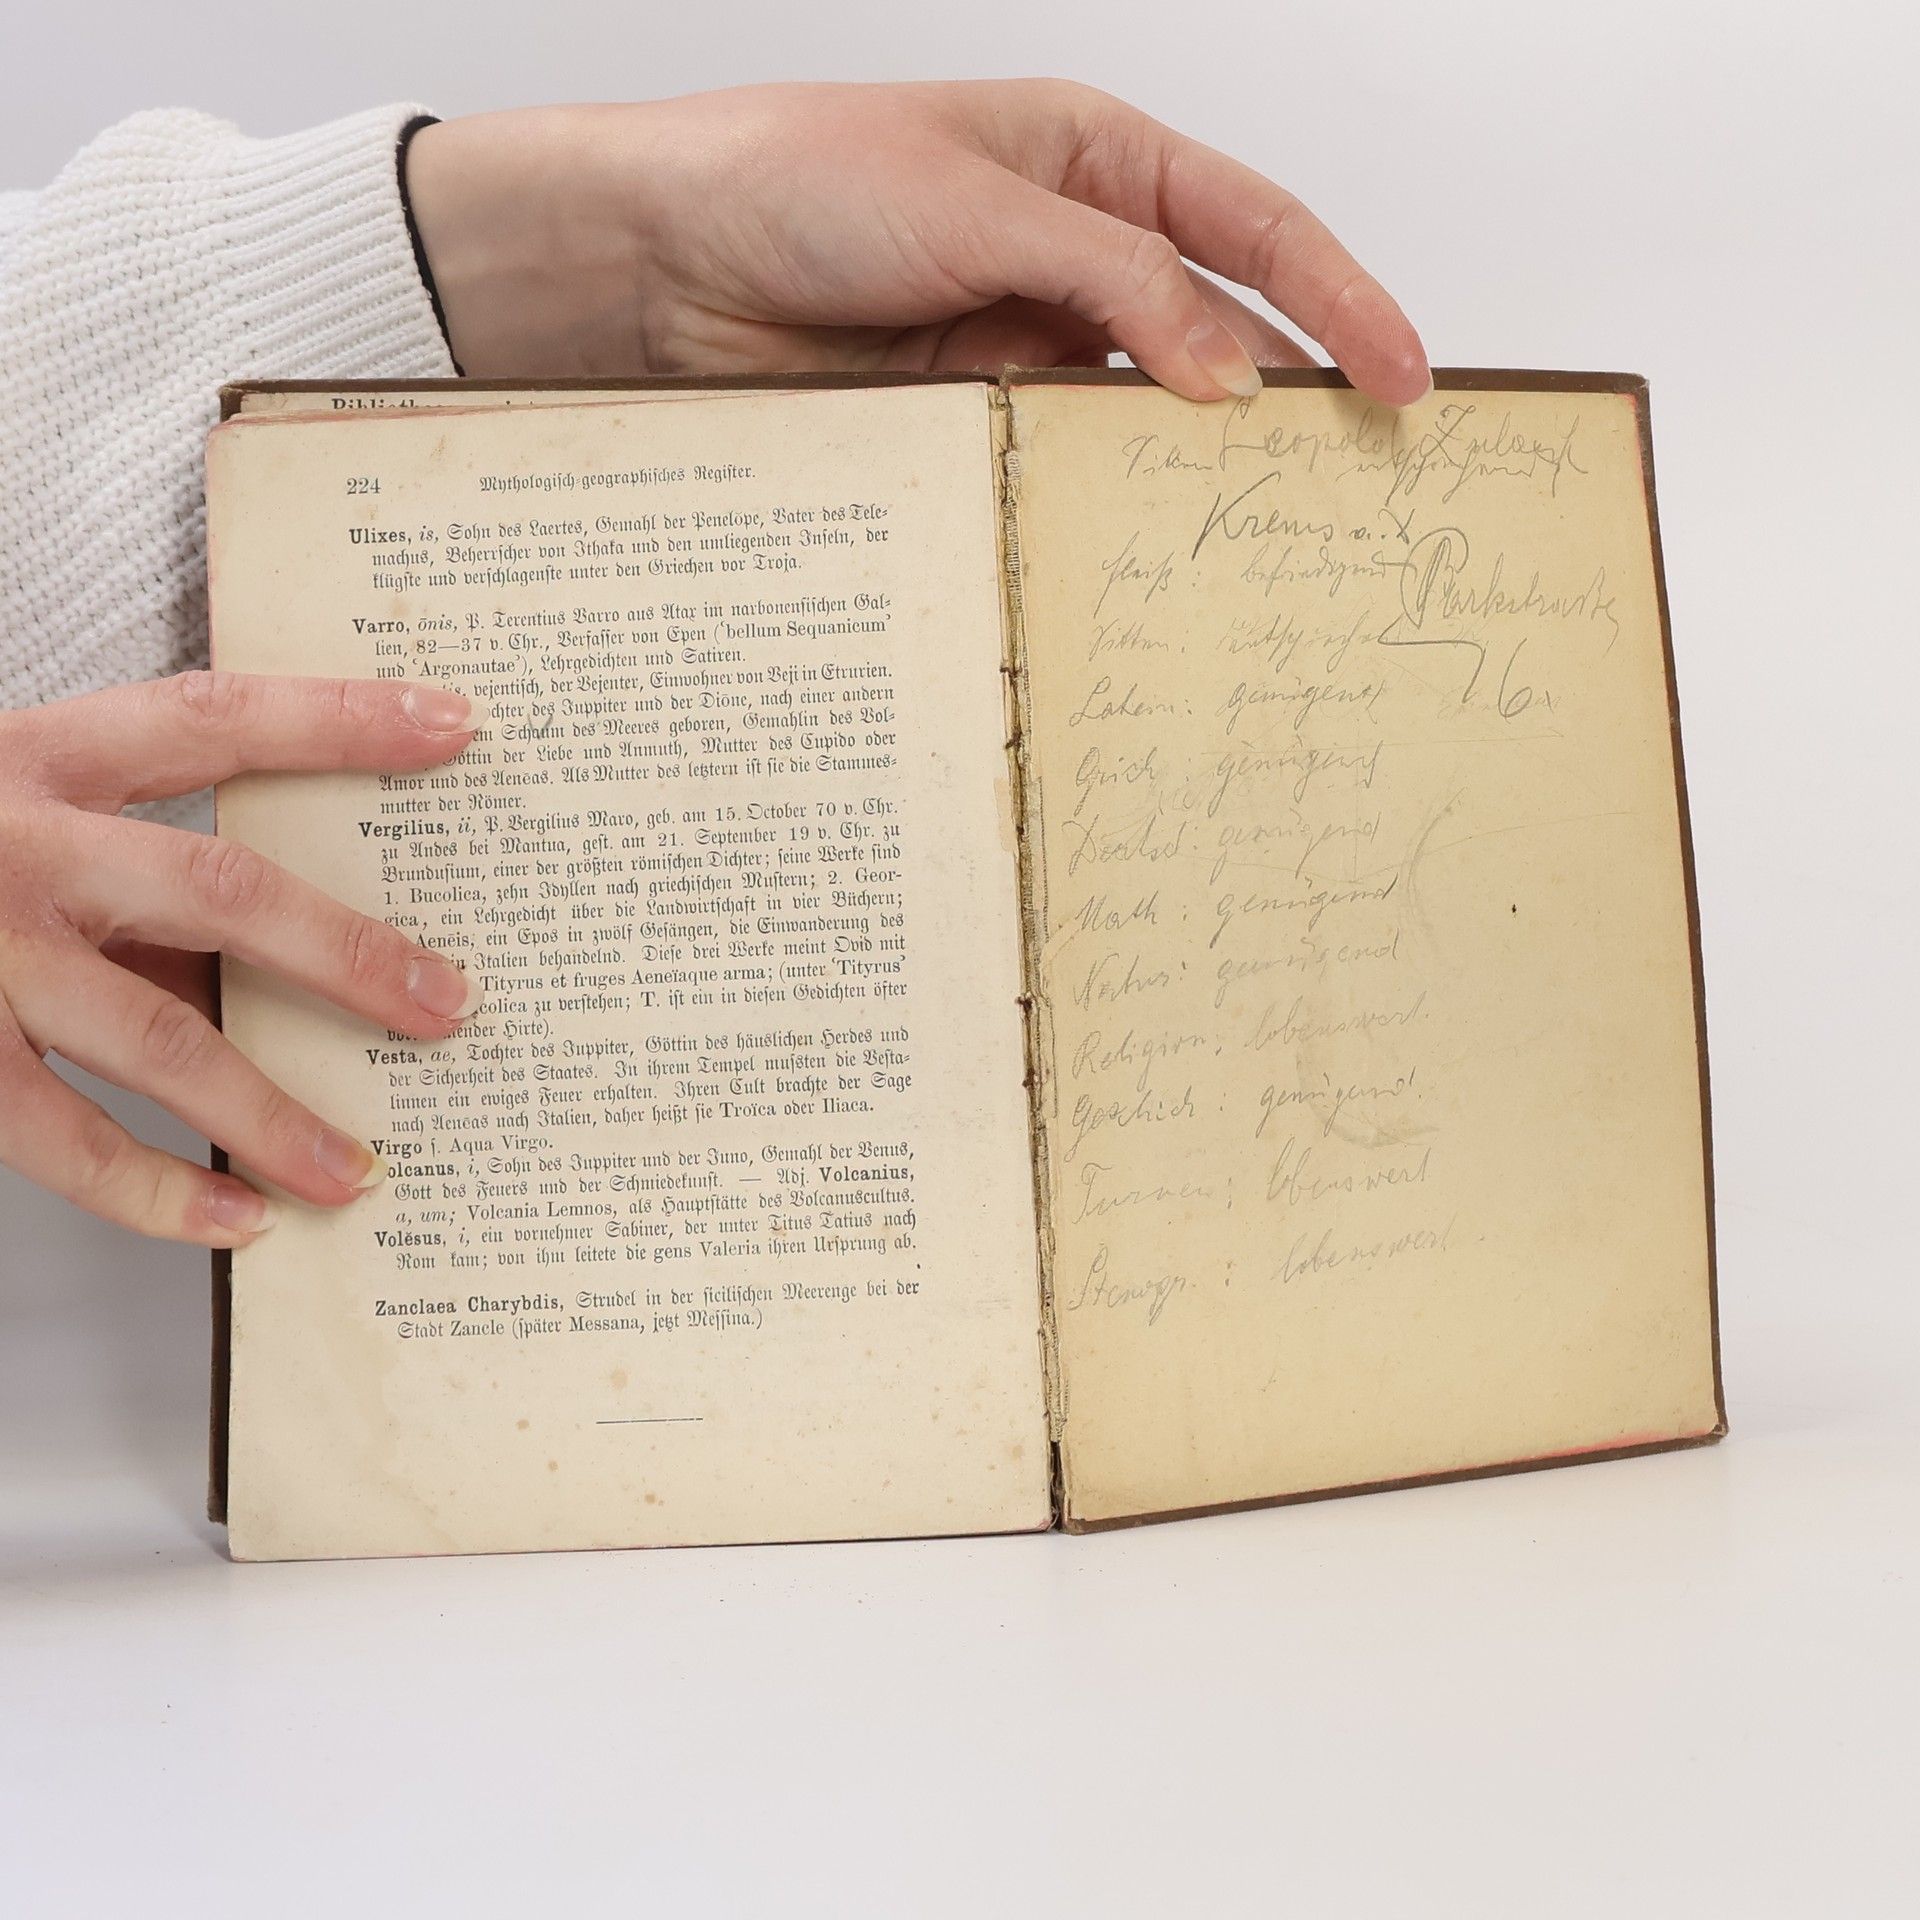 224 Mythologisch-geographisches Register.
Ulixes, is, Sohn des Laertes, Gemahl der Penelŏpe, Vater des Tele-
machus, Beherrscher von Ithaka und den umliegenden Inseln, der
klügste und verschlagenste unter den Griechen vor Troja.
Varro, ōnis, P. Terentius Varro aus Atax im narbonensischen Gal-
lien, 82—37 v. Chr., Verfasser von Epen ('bellum Sequanicum'
und 'Argonautae'), Lehrgedichten und Satiren.
vejentisch, der Vejenter, Einwohner von Veji in Etrurien.
ochter des Juppiter und der Diōne, nach einer andern
em Schaum des Meeres geboren, Gemahlin des Vol-
Göttin der Liebe und Anmuth, Mutter des Cupido oder
Amor und des Aenēas. Als Mutter des letztern ist sie die Stammes-
mutter der Römer.
Vergilius, ii, P. Vergilius Maro, geb. am 15. October 70 v. Chr.
zu Andes bei Mantua, gest. am 21. September 19 v. Chr. zu
Brundusium, einer der größten römischen Dichter; seine Werke sind
1. Bucolica, zehn Idyllen nach griechischen Mustern; 2. Geor-
gica, ein Lehrgedicht über die Landwirtschaft in vier Büchern;
Aenēis, ein Epos in zwölf Gesängen, die Einwanderung des
in Italien behandelnd. Diese drei Werke meint Ovid mit
Tityrus et fruges Aeneïaque arma; (unter 'Tityrus'
colica zu verstehen; T. ist ein in diesen Gedichten öfter
ender Hirte).
Vesta, ae, Tochter des Juppiter, Göttin des häuslichen Herdes und
der Sicherheit des Staates. In ihrem Tempel mussten die Vesta-
linnen ein ewiges Feuer erhalten. Ihren Cult brachte der Sage
nach Aenēas nach Italien, daher heißt sie Troïca oder Iliaca.
Virgo s. Aqua Virgo.
olcanus, i, Sohn des Juppiter und der Juno, Gemahl der Venus,
Gott des Feuers und der Schmiedekunst. — Adj. Volcanius,
a, um; Volcania Lemnos, als Hauptstätte des Volcanuscultus.
Volĕsus, i, ein vornehmer Sabiner, der unter Titus Tatius nach
Rom kam; von ihm leitete die gens Valeria ihren Ursprung ab.
Zanclaea Charybdis, Strudel in der sicilischen Meerenge bei der
Stadt Zancle (später Messana, jetzt Messina.)
Leopold
Sitten entsprechend
Krems a.
Fleiß: befriedigend Parkstraße
Sitten: entsprechend
6
Latein: genügend
Griech: genügend
Deutsch: genügend
Math: genügend
Natur: genügend
Religion: lobenswert.
Geschich: genügend.
Turnen: lobenswert
Stenogr.: lobenswert.